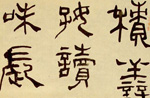 積善
讀
味長